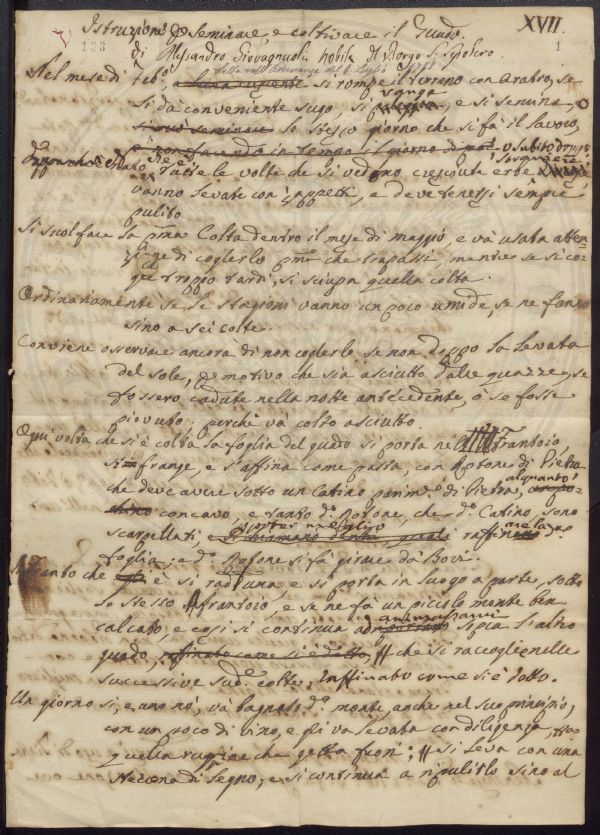 XVII.
133
1
Istruzione p. Seminare, e coltivare il Guado.
di Alessandro Giovagnuoli nobile d. Borgo S. Sepolcro.
letta nell'Adunanza del 6 Luglio
Nel mese di Feb.o si rompe il terreno con Aratro, se
si dà conveniente sugo, si vanga, e si semina
si può seminare lo stesso giorno che si fà il lavoro,
e non facendo in tempo il giorno di poi o subito doppo
Tutte le volte che si vedono cresciute erbe
vanno levate con zappetti, e deve tenersi sempre
pulito
Si suol fare la p.ma Colta dentro il mese di maggio, e và usata atten-
zione di coglierlo p.mo che trapassi, mentre se si co-
glie troppo tardi, si sciupa quella colta.
Ordinariamente se le stagioni vanno un poco umide, se ne fanno
sino a sei colte.
Conviene osservare ancora di non coglierlo se non doppo la Levata
del sole, p. motivo che sia asciutto dalle guazze, se
fossero cadute nella notte antecedente, o se fosse
piovuto, perchè và colto asciutto.
Ogni volta che si è colta la foglia del guado si porta nel Frantoio,
si frange, e s'affina come pasta, con Rotone di Pietra
che deve avere sotto un Catino parim.e di Pietra, alquanto
concavo, e tanto d.o Rotone, che d.o Catino, sono
scarpellati, p. poter meglio raffinare la d.a
foglia; e d.o Rotone si fà girare dà Bovi.
Infranto che è si raduna, e si porta in luogo a parte, sotto
lo stesso frantoio, e se ne fà un piccolo monte ben
calcato, e così si continua ad ammassarvi sopra l'altro
guado, raffinato come si è detto, che si raccoglie nelle
successive sud.e colte, raffinato come si è detto.
Un giorno si, e uno nò, và bagnato d.o monte, anche nel suo principio,
con un poco di vino, e gli và levata con diligenza,
quella ruggine che getta fuori; si leva con una
Mecona di Legno, e si continua a ripulirlo sino al